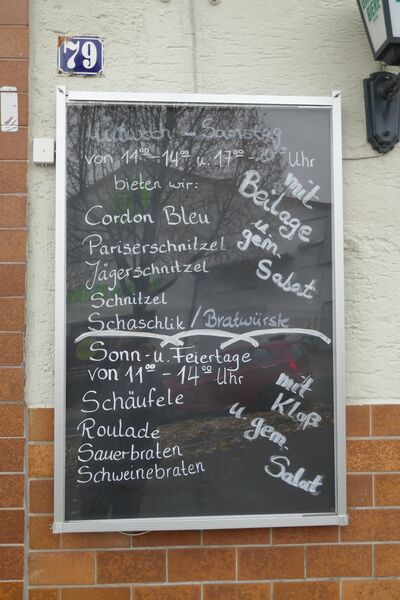 79
Mittwoch - Samstag
von 11⁰⁰ - 14⁰⁰ u. 17⁰⁰ - Uhr
bieten wir:
Cordon Bleu
Pariserschnitzel
Jägerschnitzel
Schnitzel
Schaschlik / Bratwürste
mit
Beilage
u.
gem.
Salat
Sonn- u. Feiertage
von 11⁰⁰ - 14⁰⁰ Uhr
Schäufele
Roulade
Sauerbraten
Schweinebraten
mit
Kloß
u. gem.
Salat